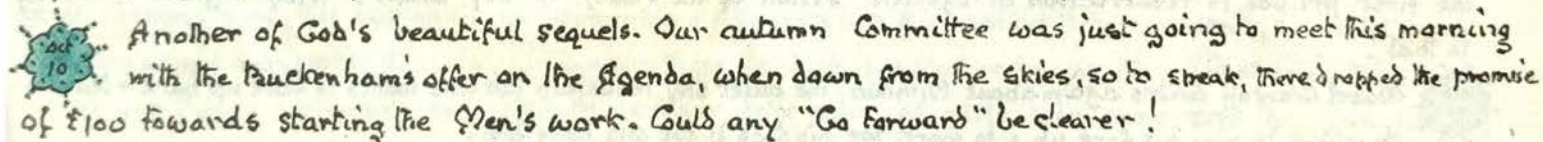 Oct 10 Another of God's beautiful sequels. Our autumn Committee was just going to meet this morning
with the Buckenham's offer on the Agenda, when down from the skies, so to speak, there dropped the promise
of £100 towards starting the Men's work. Could any "Go Forward" be clearer!